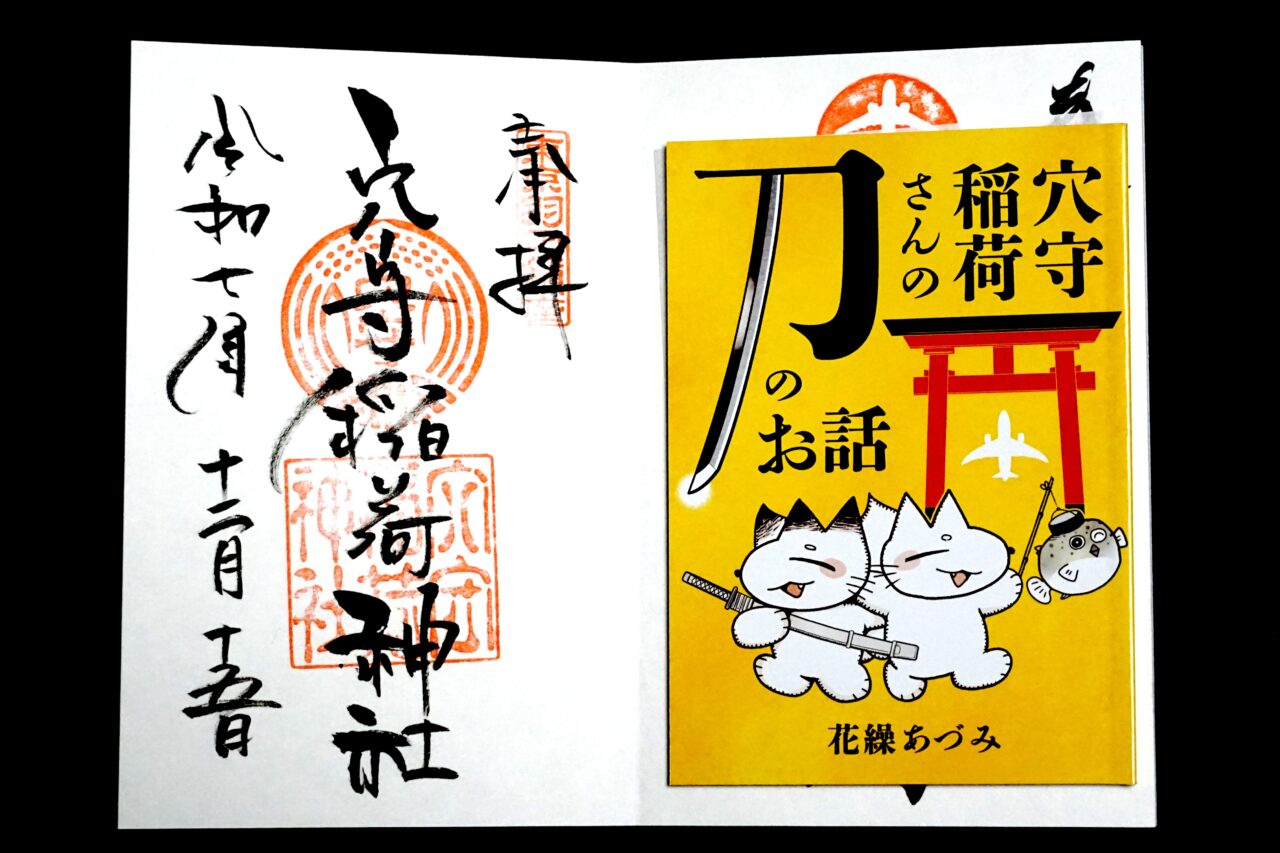 奉拝
穴守稲荷神社
令和七年 十二月 十五日
穴守
神社
穴守
稲荷
さんの
刀
の
お話
花繰あづみ